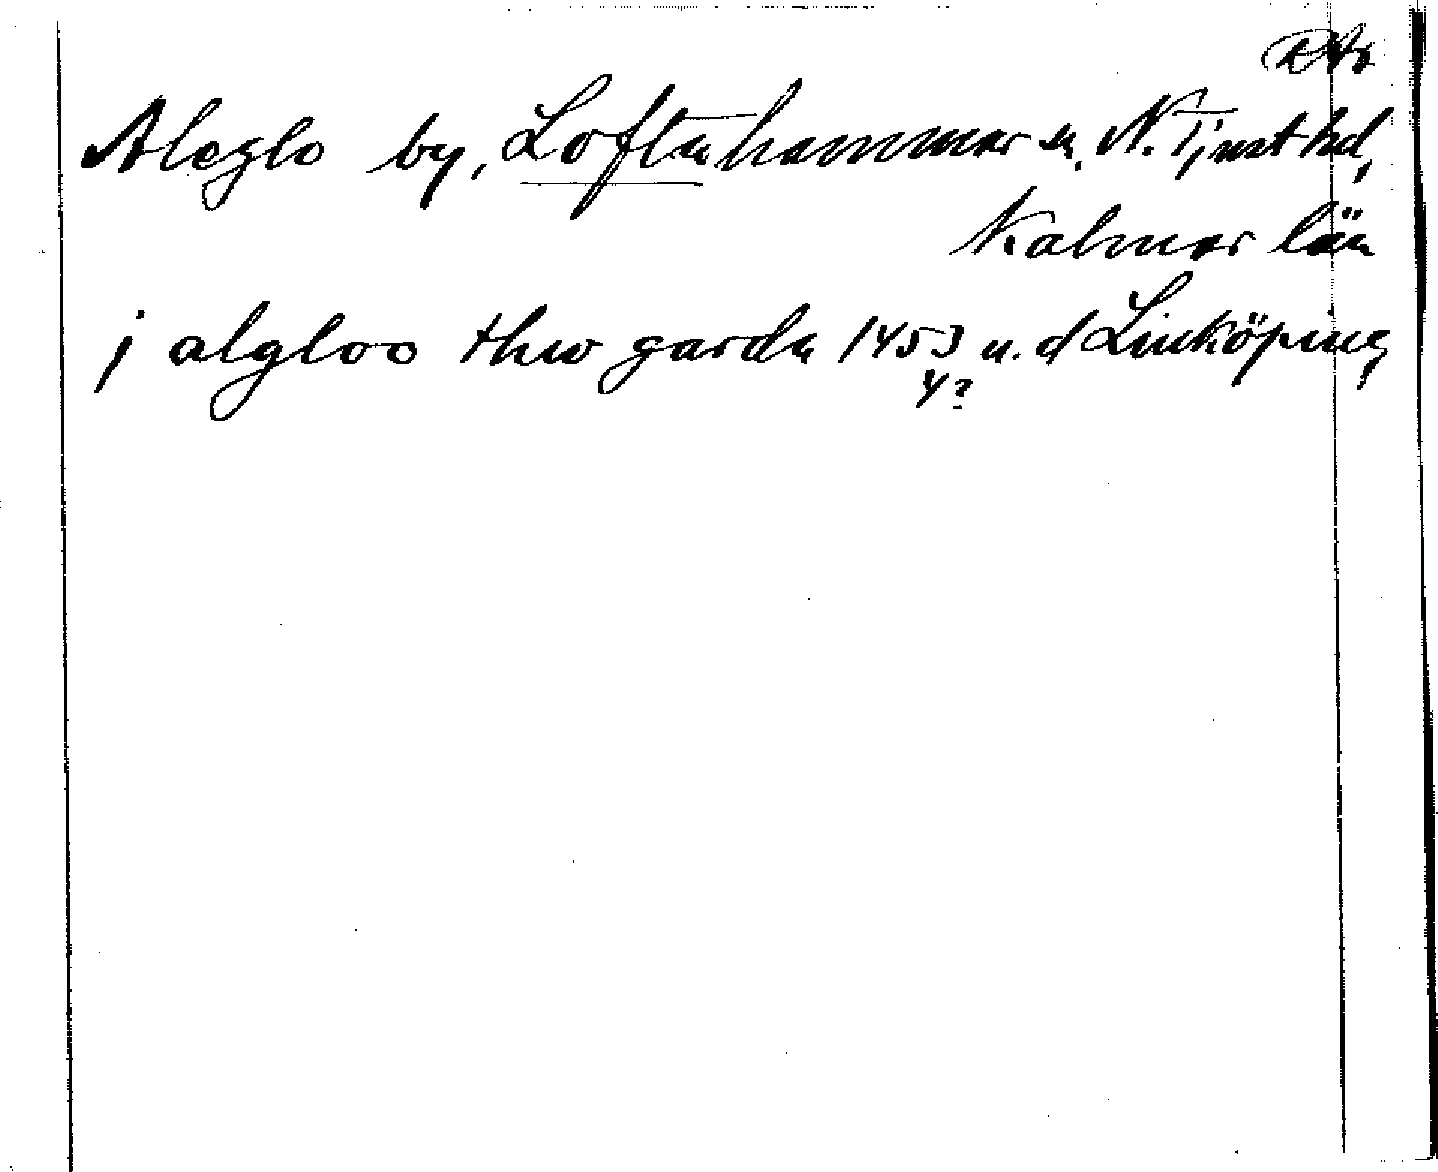 RAp
Aleglo by, Loftahammar sn, N. Tjust hd,
Kalmar län
j algloo thw garda 1453 u. d Linköping
4?